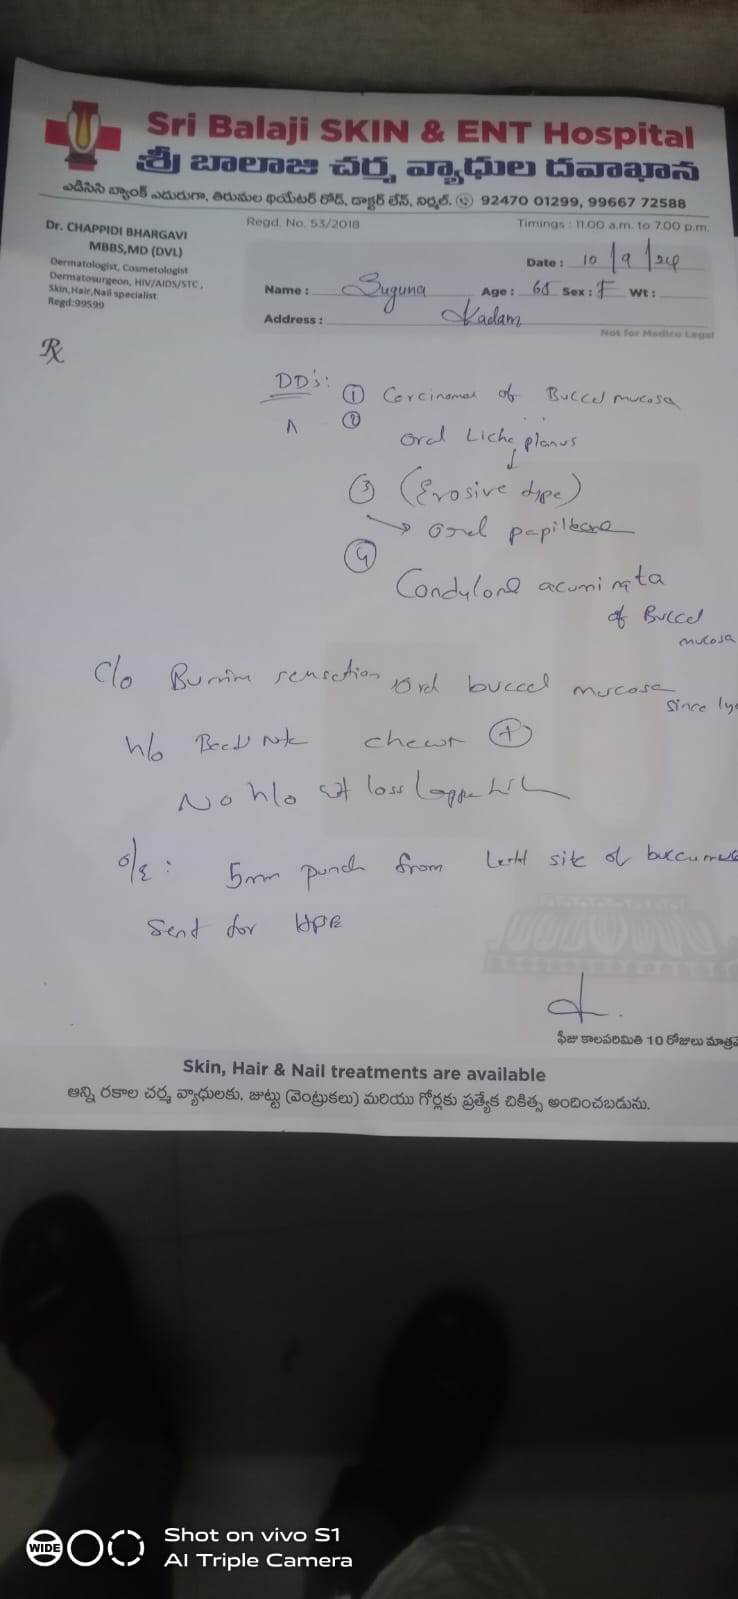 Sri Balaji SKIN & ENT Hospital
శ్రీ బాలాజి చర్మ వ్యాధుల దవాఖాన
ఎడిసిసి బ్యాంక్ ఎదురుగా, తిరుమల థియేటర్ రోడ్, డాక్టర్ లేన్, నిర్మల్. 92470 01299, 99667 72588
Dr. CHAPPIDI BHARGAVI
MBBS,MD (DVL)
Dermatologist, Cosmetologist
Dermatosurgeon, HIV/AIDS/STC,
Skin,Hair,Nail specialist
Regd:99599
Regd. No. 53/2018 Timings : 11.00 a.m. to 7.00 p.m.
Date : 10/9/24
Name : Suguna Age : Sex : F Wt :
Address : Kadam
Not for Medico Legal
Rx
DD's: ① Carcinoma of Buccal mucosa
② Oral Liche planus
③ (Erosive type)
→ oral
④ acuminata
of Buccal
mucosa
C/o sensation buccal mucosa
since
h/o chew +
No h/o wt loss
O/E: 5mm punch from site of
Send for HPE
ఫీజు కాలపరిమితి 10 రోజులు
Skin, Hair & Nail treatments are available
అన్ని రకాల చర్మ వ్యాధులకు, జుట్టు (వెంట్రుకలు) మరియు గోర్లకు ప్రత్యేక చికిత్స అందించబడును.
WIDE
Shot on vivo S1
AI Triple Camera